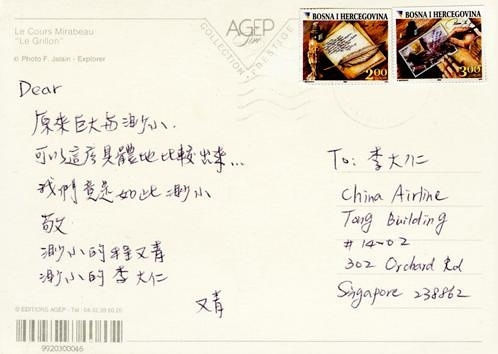 Le Cours Mirabeau
"Le Grillon"
© Photo F. Jalain - Explorer
AGEP
COLLECTION PRESTIGE
BOSNA I HERCEGOVINA
2.00
BOSNA I HERCEGOVINA
3.00
Dear
原來巨大與渺小.
可以這麼具體地比較出來...
我們竟是如此渺小
敬
渺小的程又青
渺小的李大仁
又青
To: 李大仁
China Airline
Tong Building
#14-02
302 Orchard Rd
Singapore 238862
© EDITIONS AGEP - Tél :
9920300046